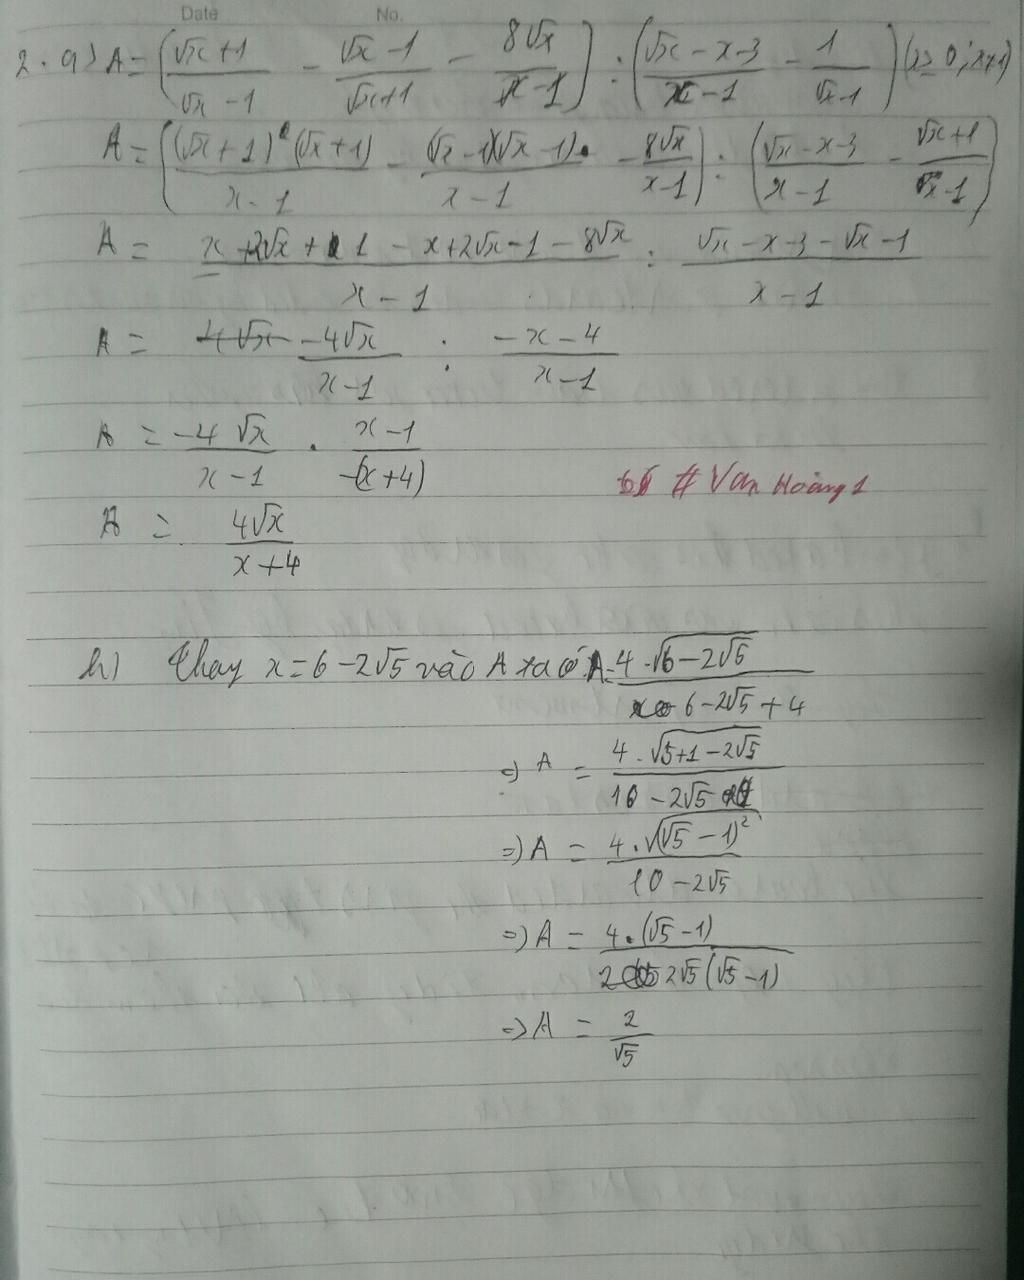 Date No.
2. a) A = ((√x + 1)/(√x - 1) - (√x - 1)/(√x + 1) - 8√x/(x - 1)) : ((√x - x - 3)/(x - 1) - 1/(√x - 1)) (x ≥ 0; x ≠ 1)
A = ((√x + 1)(√x + 1)/(x - 1) - (√x - 1)(√x - 1)/(x - 1) - 8√x/(x - 1)) : ((√x - x - 3)/(x - 1) - (√x + 1)/(x - 1))
A = (x + 2√x + 1 - x + 2√x - 1 - 8√x)/(x - 1) : (√x - x - 3 - √x - 1)/(x - 1)
A = -4√x/(x - 1) : (-x - 4)/(x - 1)
A = -4√x/(x - 1) . (x - 1)/(-(x + 4))
# Van Hoàng 1
A = 4√x/(x + 4)
b) Thay x = 6 - 2√5 vào A ta có A = 4.√(6 - 2√5)/(6 - 2√5 + 4)
=> A = 4.√(5 + 1 - 2√5)/(10 - 2√5)
=> A = 4.√((√5 - 1)²)/(10 - 2√5)
=> A = 4.(√5 - 1)/(2√5(√5 - 1))
=> A = 2/√5